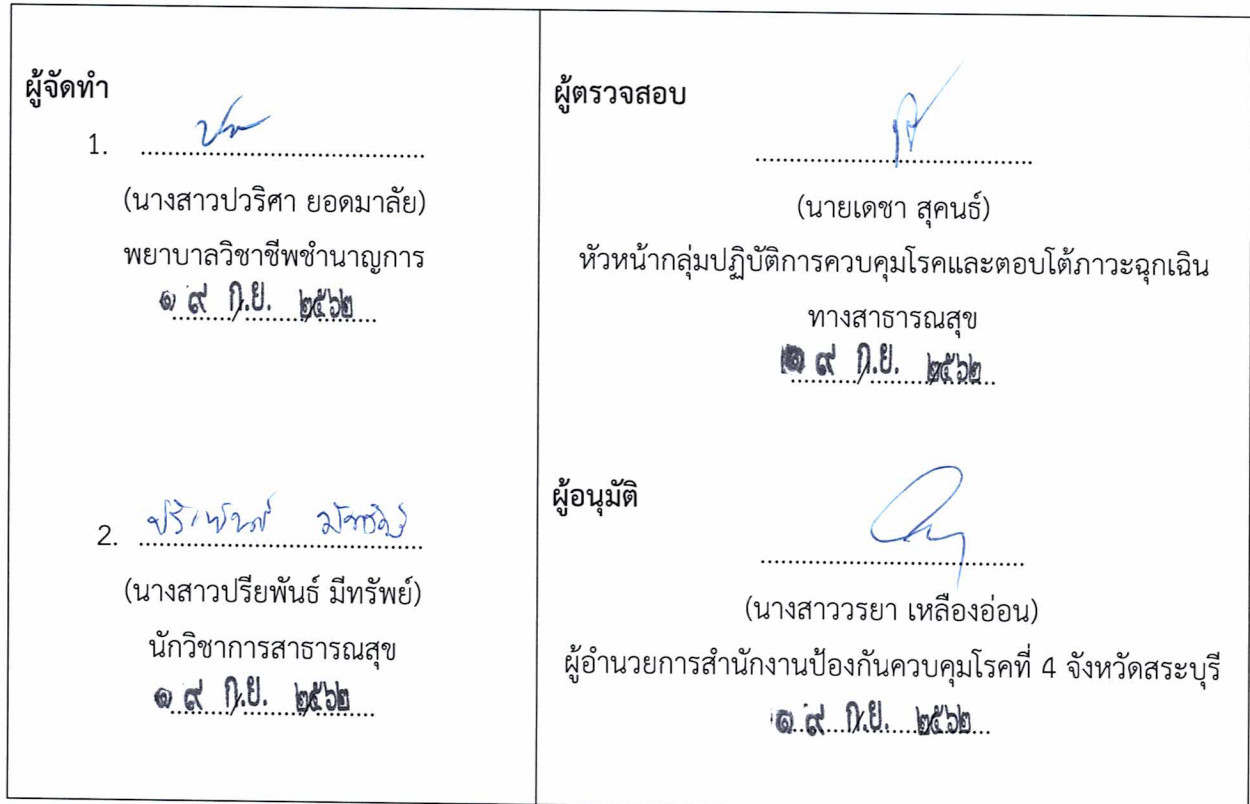 ผู้จัดทำ
1. ........................................
(นางสาวปวริศา ยอดมาลัย)
พยาบาลวิชาชีพชำนาญการ
๑ ๙ ก.ย. ๒๕๖๒
2. ........................................
(นางสาวปรียพันธ์ มีทรัพย์)
นักวิชาการสาธารณสุข
๑ ๙ ก.ย. ๒๕๖๒
ผู้ตรวจสอบ
........................................
(นายเดชา สุคนธ์)
หัวหน้ากลุ่มปฏิบัติการควบคุมโรคและตอบโต้ภาวะฉุกเฉิน
ทางสาธารณสุข
๑ ๙ ก.ย. ๒๕๖๒
ผู้อนุมัติ
........................................
(นางสาววรยา เหลืองอ่อน)
ผู้อำนวยการสำนักงานป้องกันควบคุมโรคที่ 4 จังหวัดสระบุรี
๑ ๙ ก.ย. ๒๕๖๒